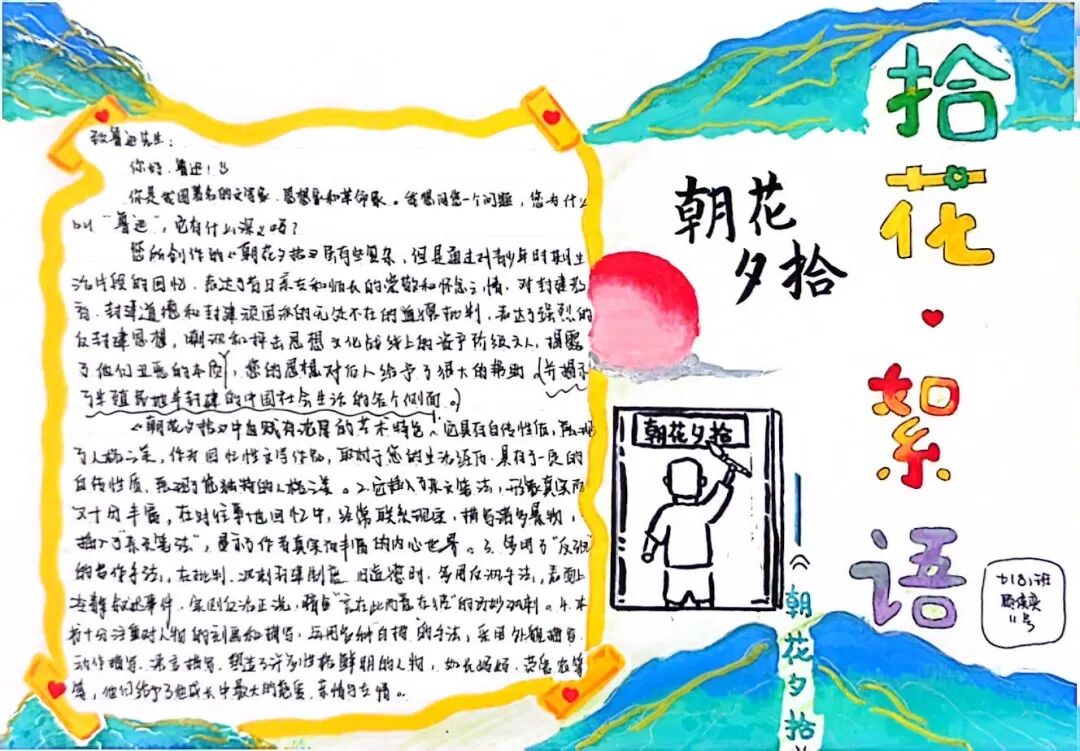 致鲁迅先生：
你好，鲁迅！
你是我国著名的文学家、思想家和革命家。我想问您一个问题，您为什么
叫“鲁迅”，它有什么深义吗？
您所创作的《朝花夕拾》虽有些复杂，但是通过对青少年时期生
活片段的回忆，表达了昔日亲友和师长的爱敬和怀念之情，对封建教
育，封建道德和封建顽固派的无处不在的道德批判，表达了强烈的
反封建思想，嘲讽和抨击思想文化战线上的资产阶级文人，揭露
了他们丑恶的本质，您的思想对后人给予了很大的帮助（并揭示
了半殖民地半封建的中国社会生活的各个侧面。）
《朝花夕拾》中且赋有浓厚的艺术特色。它具有自传性质，
了人格之美，作为回忆性文学作品，取材于您的生活经历，具有一定的
自传性质，表现了您独特的人格之美。2.它插入了杂文笔法，形象真实而
又十分丰富，在对往事地回忆中，经常联系现实，描写诸多景物，
插入了“杂文笔法”，显示了作者真实和丰富的内心世界。3.多用了“反讽”
的写作手法，在批判、讽刺封建制度、旧道德时，多用反讽手法，表面上
冷静叙述事件，实则反话正说，“言在此而意在彼”的巧妙讽刺。4.本
书十分注重对人物的刻画和描写，运用多种白描的手法，采用外貌描写、
动作描写、语言描写，塑造了许多性格鲜明的人物，如长妈妈、
等，他们给予了他成长中最大的、亲情与友情。
朝花
夕拾
朝花夕拾
拾花·絮语
《朝花夕拾》
七(8)班
11号